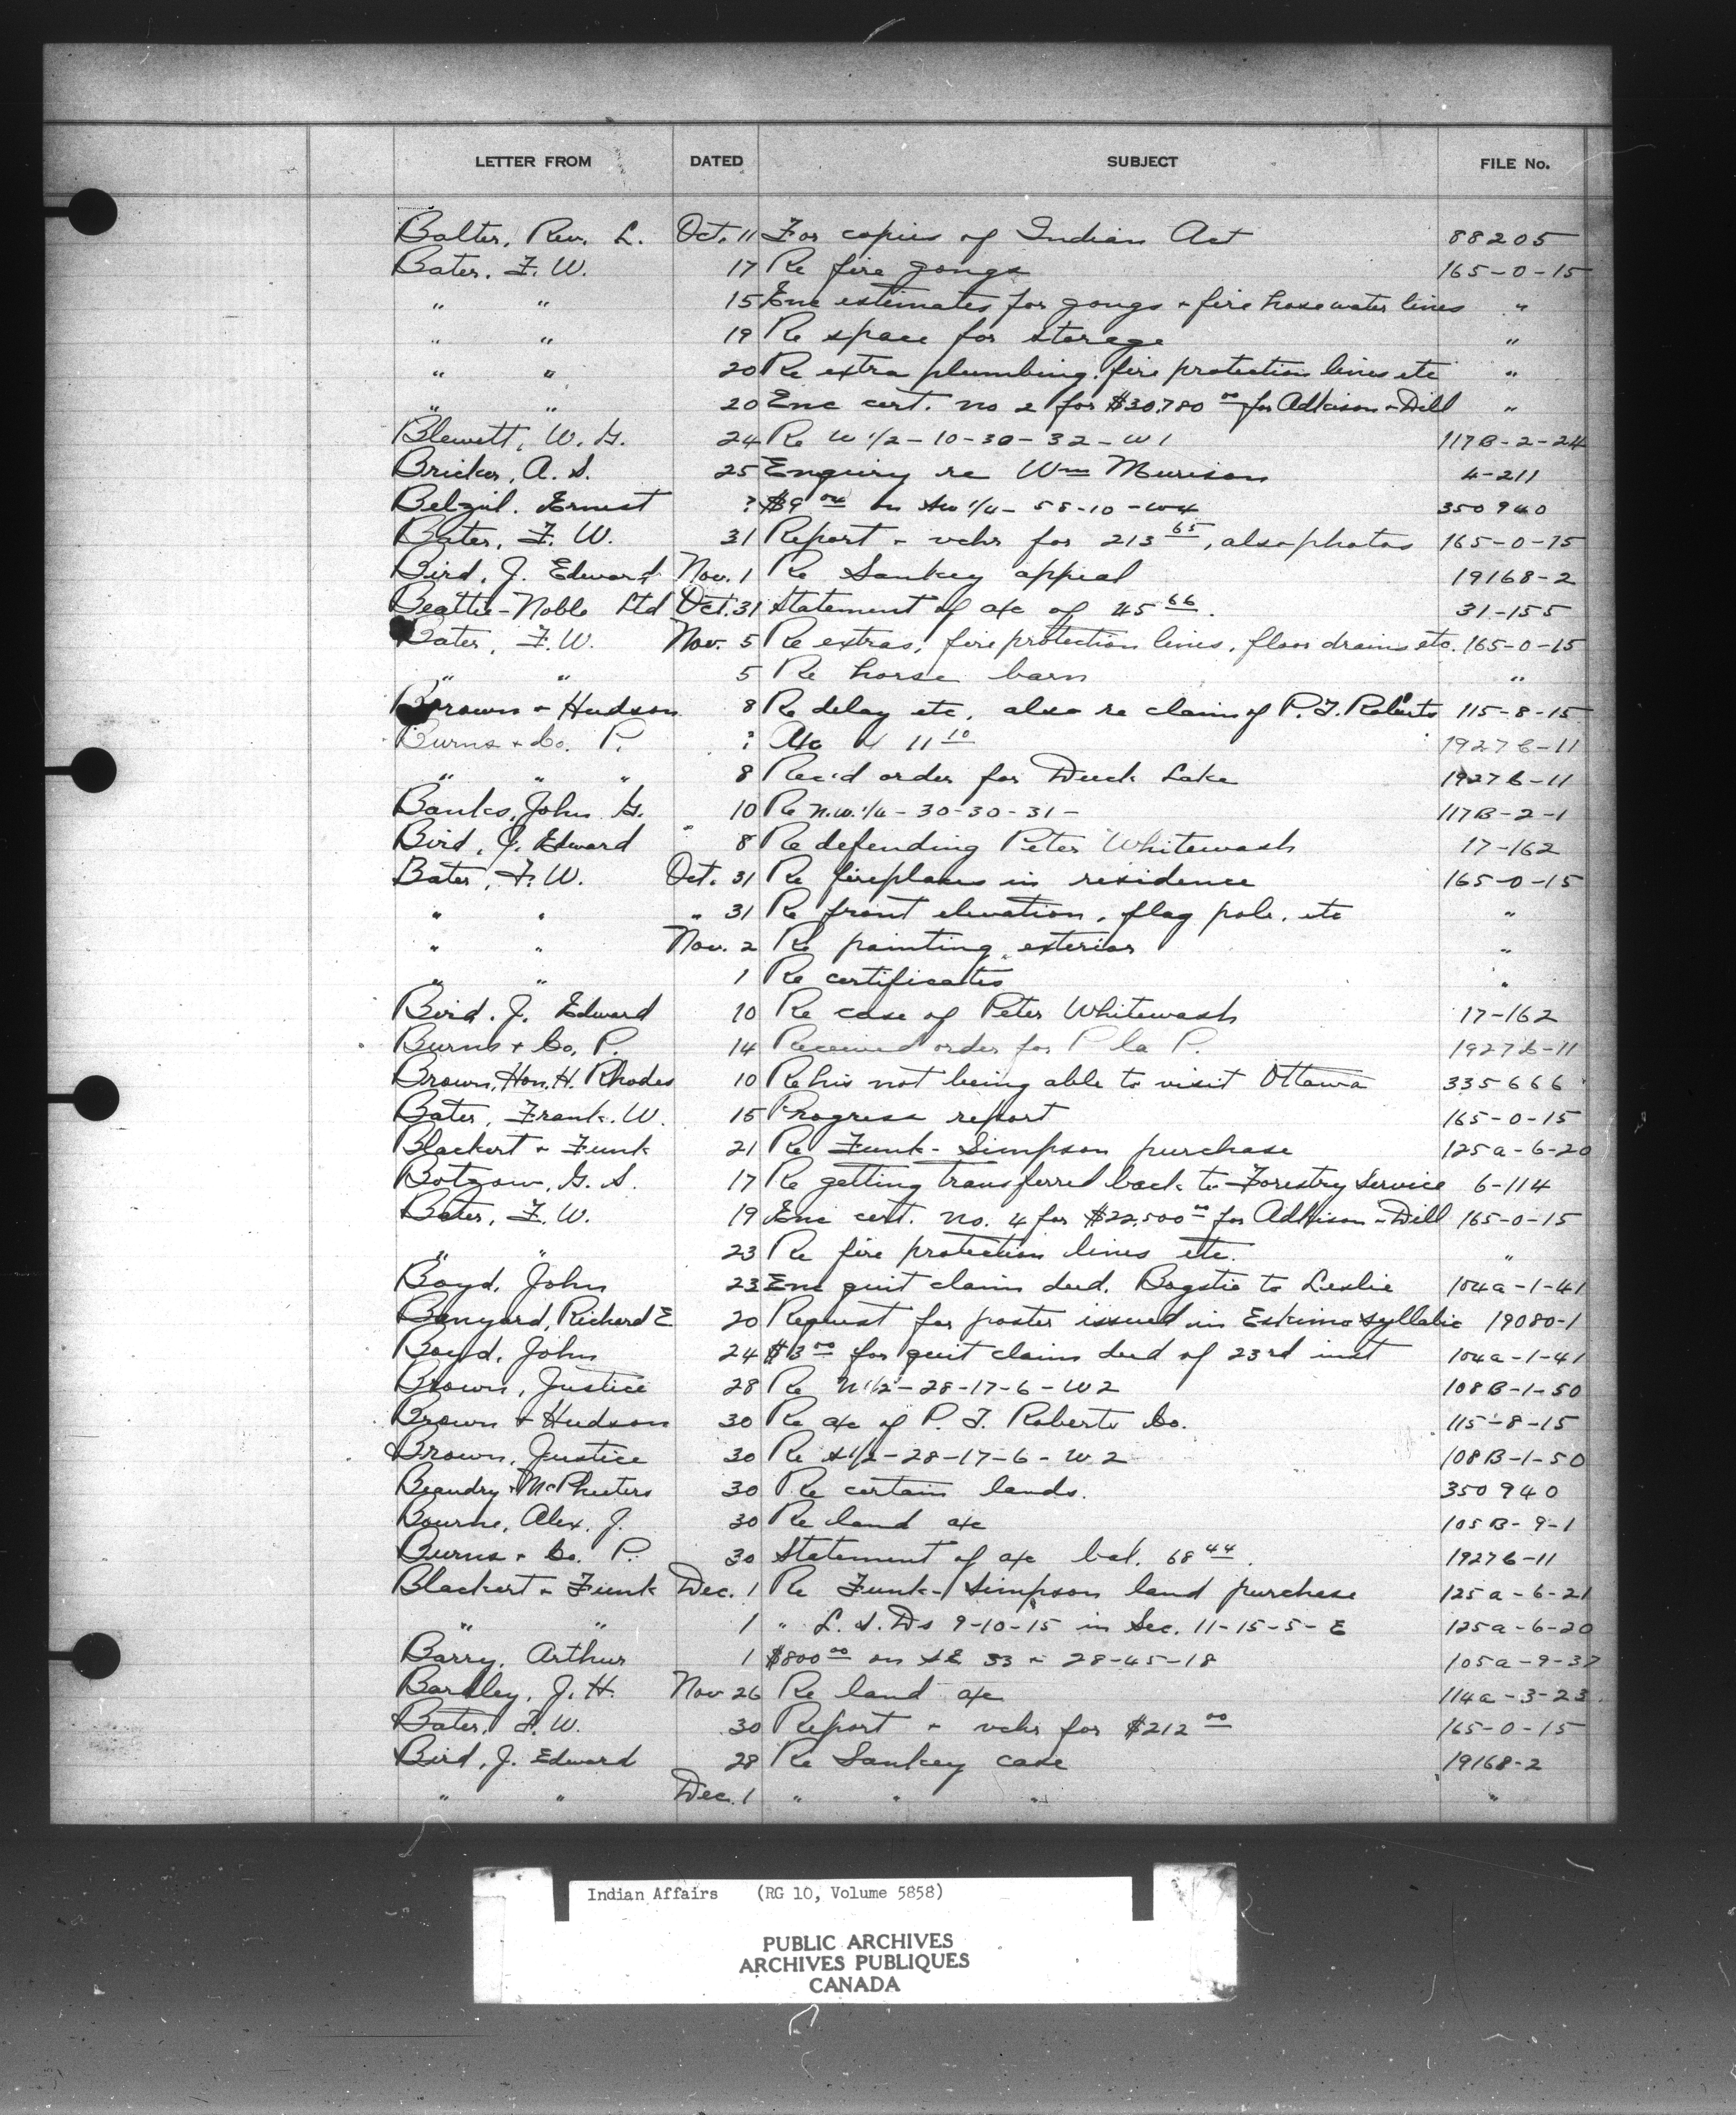 LETTER FROM DATED SUBJECT FILE No.
Balter, Rev. L. Oct. 11 For copies of Indian Act 88205
Bater, F. W. 17 Re fire gongs 165-0-15
" " 15 Enc estimates for gongs + fire hose water lines "
" " 19 Re space for storage "
" " 20 Re extra plumbing, fire protection lines etc "
" " 20 Enc cert. no 2 for $30,780 00 for Adkison + Dill "
Blewett, W. G. 24 Re W 1/2-10-30-32-W1 117B-2-24
Bricker, A. S. 25 Enquiry re Wm Murison 4-211
Belzil, Ernest ? $9 04 on SW 1/4-58-10-W4 350940
Bater, F. W. 31 Report + vchr for 213 65, also photos 165-0-15
Bird, J. Edward Nov. 1 Re Sankey appeal 19168-2
Beattie-Noble Ltd Oct. 31 Statement of a/c of 45 66. 31-155
Bater, F. W. Nov. 5 Re extras, fire protection lines, floor drains etc. 165-0-15
" " 5 Re horse barn "
Brown + Hudson 8 Re delay etc, also re claim of P. T. Roberts 115-8-15
Burns + Co. P. ? A/c 11 10 19276-11
" " " 8 Rec'd order for Duck Lake 19276-11
Banks, John G. 10 Re N.W. 1/4-30-30-31- 117B-2-1
Bird, J. Edward " 8 Re defending Peter Whitewash 17-162
Bater, F. W. Oct. 31 Re fireplaces in residence 165-0-15
" " " 31 Re front elevation, flag pole, etc "
" " Nov. 2 Re painting exterior "
" " 1 Re certificates "
Bird, J. Edward 10 Re case of Peter Whitewash 17-162
Burns + Co, P. 14 Received order for P la P. 19276-11
Brown, Hon. H. Rhodes 10 Re his not being able to visit Ottawa 335666
Bater, Frank. W. 15 Progress report 165-0-15
Blackert + Funk 21 Re Funk-Simpson purchase 125a-6-20
Botzow, G. S. 17 Re getting transferred back to Forestry Service 6-114
Bater, F. W. 19 Enc cert. no. 4 for $22,500 00 for Adkison + Dill 165-0-15
" " 23 Re fire protection lines etc. "
Boyd, John 23 Enc quit claim deed, Bogstie to Leslie 104a-1-41
Banyard, Richard E 20 Request for poster issued in Eskimo syllabic 19080-1
Boyd, John 24 $3 00 for quit claim deed of 23rd inst 104a-1-41
Brown, Justice 28 Re N 1/2-28-17-6-W2 108B-1-50
Brown + Hudson 30 Re a/c of P. T. Roberts Co. 115-8-15
Brown, Justice 30 Re S 1/2-28-17-6-W2 108B-1-50
Beaudry + McPheeters 30 Re certain lands. 350940
Bourne, Alex. J. 30 Re land a/c 105B-9-1
Burns + Co. P. 30 Statement of a/c bal. 68 44. 19276-11
Blackert + Funk Dec. 1 Re Funk-Simpson land purchase 125a-6-21
" " 1 " L. S. Ds 9-10-15 in Sec. 11-15-5-E 125a-6-20
Barry, Arthur 1 $800 00 on SE 33 + 28-45-18 105a-9-37
Bardley, J. H. Nov 26 Re land a/c 114a-3-23
Bater, F. W. 30 Report + vchr for $212 00 165-0-15
Bird, J. Edward 28 Re Sankey case 19168-2
" " Dec. 1 " " " "
Indian Affairs (RG 10, Volume 5858)
PUBLIC ARCHIVES
ARCHIVES PUBLIQUES
CANADA